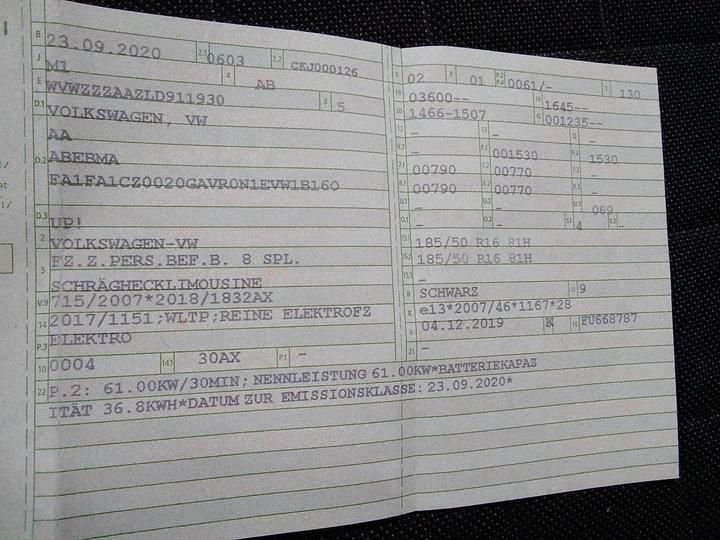 B 23.09.2020 2.1 0603 2.2 CKJ000126
J M1 4 AB
E WVWZZZAAZLD911930 3 5
D.1 VOLKSWAGEN, VW
AA
D.2 ABEBMA
FA1FA1CZ0020GAVR0N1EVW1B16O
D.3 UP!
2 VOLKSWAGEN-VW
5 FZ.Z.PERS.BEF.B. 8 SPL.
SCHRÄGHECKLIMOUSINE
V.9 715/2007*2018/1832AX
14 2017/1151;WLTP;REINE ELEKTROFZ
P.3 ELEKTRO
10 0004 14.1 30AX P.1 -
22 P.2: 61.00KW/30MIN; NENNLEISTUNG 61.00KW*BATTERIEKAPAZ
ITÄT 36.8KWH*DATUM ZUR EMISSIONSKLASSE: 23.09.2020*
L 02 9 01 P.2 P.4 0061/- T 130
18 03600-- 19 1645--
20 1466-1507 G 001235--
12 - 13 - Q -
V.7 - F.1 001530 F.2 1530
7.1 00790 7.2 00770 7.3 -
8.1 00790 8.2 00770 8.3 -
U.1 - U.2 - U.3 069
O.1 - O.2 - S.1 4 S.2 -
15.1 185/50 R16 81H
15.2 185/50 R16 81H
15.3 -
R SCHWARZ 11 9
K e13*2007/46*1167*28
6 04.12.2019 17 K 16 FU668787
21 -